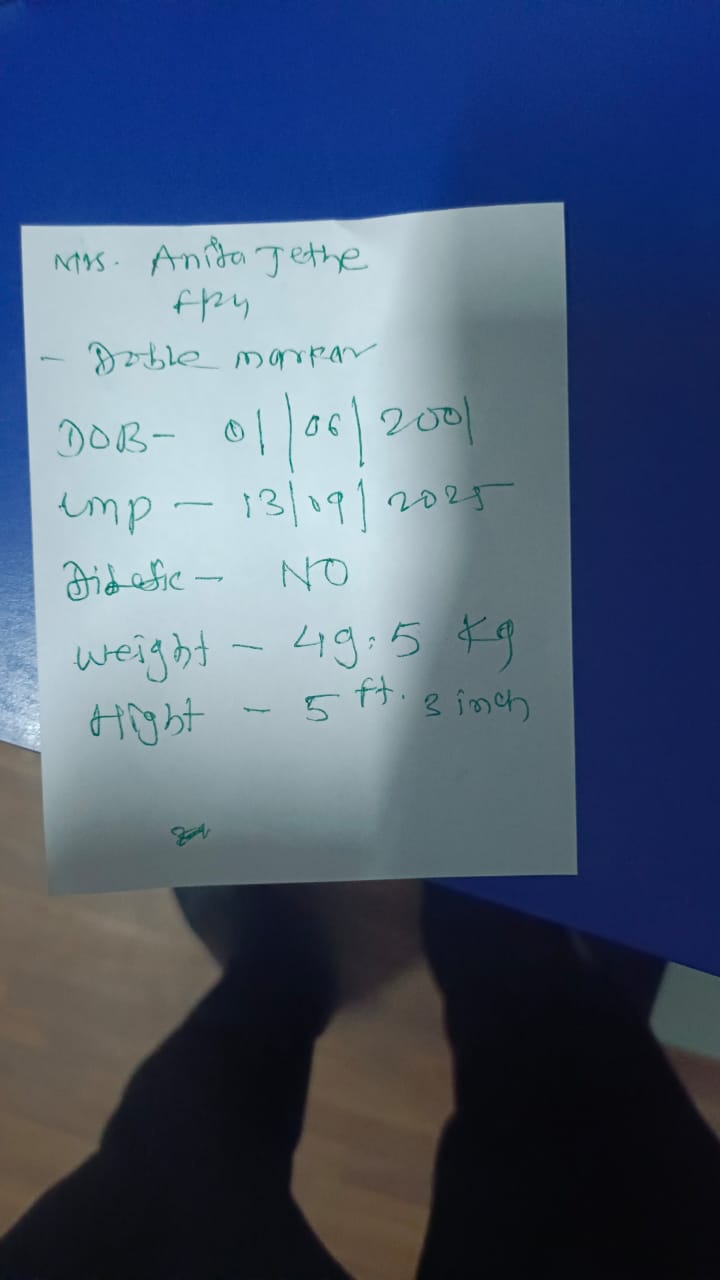 Mrs. Anita Jethe
- Doble markar
DOB - 01/06/2001
Lmp - 13/09/2025
Dibetic - NO
weight - 49.5 Kg
Hight - 5 ft. 3 inch